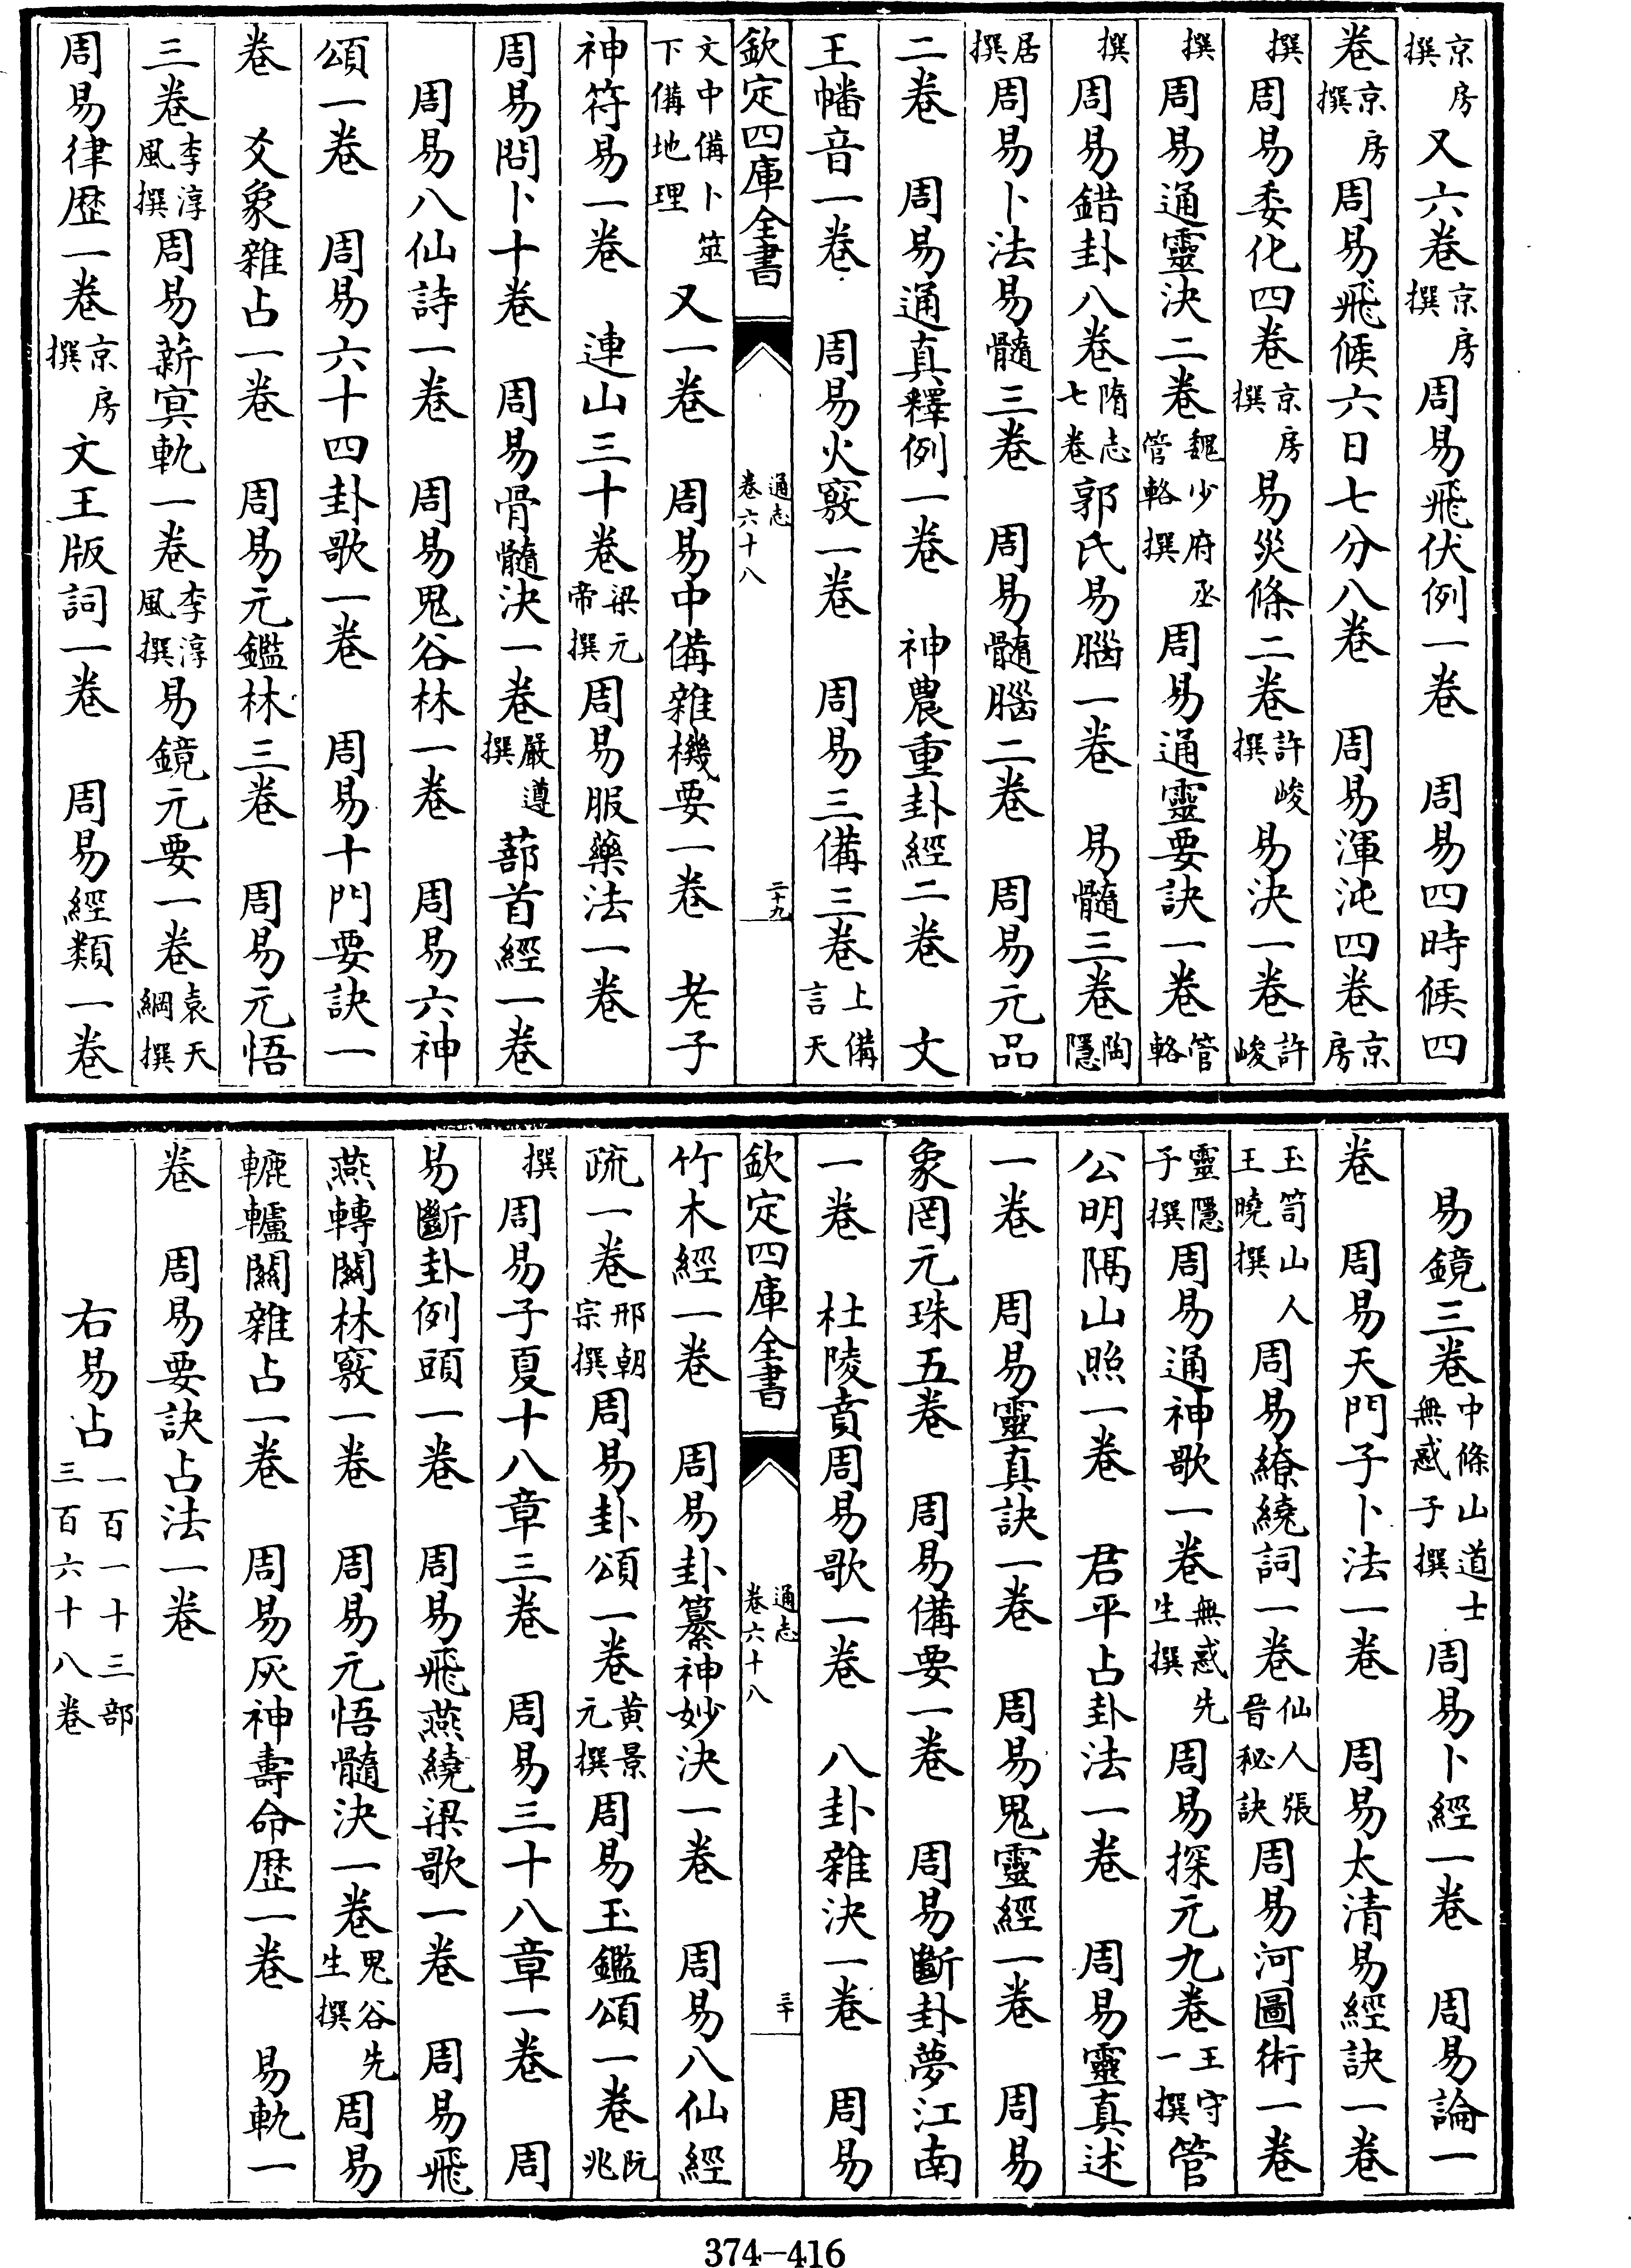 京房撰又六卷京房撰周易飛伏例一卷　周易四時候四
卷京房撰周易飛候六日七分八卷　周易渾沌四卷京房
撰周易委化四卷京房撰易災條二卷許峻撰易決一卷許峻
撰周易通靈決二卷魏少府丞管輅撰周易通靈要訣一卷管輅
撰周易錯卦八卷隋志七卷郭氏易腦一卷　易髓三卷陶隱
居撰周易卜法易髓三卷　周易髓腦二卷　周易元品
二卷　周易通真釋例一卷　神農重卦經二卷　文
王幡音一卷　周易火竅一卷　周易三備三卷上備言天
欽定四庫全書　通志卷六十八　二十九
文中備卜筮下備地理又一卷　周易中備雜機要一卷　老子
神符易一卷　連山三十卷梁元帝撰周易服藥法一卷
周易問卜十卷　周易骨髓決一卷嚴遵撰蔀首經一卷
周易八仙詩一卷　周易鬼谷林一卷　周易六神
頌一卷　周易六十四卦歌一卷　周易十門要訣一
卷　爻象雜占一卷　周易元鑑林三卷　周易元悟
三卷李淳風撰周易薪冥軌一卷李淳風撰易鏡元要一卷袁天綱撰
周易律歴一卷京房撰文王版詞一卷　周易經類一卷
易鏡三卷中條山道士無惑子撰周易卜經一卷　周易論一
卷　周易天門子卜法一卷　周易太清易經訣一卷
玉笥山人王曉撰周易繚繞詞一卷仙人張晉秘訣周易河圖術一卷
靈隱子撰周易通神歌一卷無惑先生撰周易探元九卷王守一撰管
公明隔山照一卷　君平占卦法一卷　周易靈真述
一卷　周易靈真訣一卷　周易鬼靈經一卷　周易
象罔元珠五卷　周易備要一卷　周易斷卦夢江南
一卷　杜陵賁周易歌一卷　八卦雜決一卷　周易
欽定四庫全書　通志卷六十八　三十
竹木經一卷　周易卦纂神妙決一卷　周易八仙經
疏一卷邢朝宗撰周易卦頌一卷黄景元撰周易玉鑑頌一卷阮兆
撰周易子夏十八章三卷　周易三十八章一卷　周
易斷卦例頭一卷　周易飛燕繞梁歌一卷　周易飛
燕轉關林竅一卷　周易元悟髓決一卷鬼谷先生撰周易
轆轤關雜占一卷　周易灰神壽命歴一卷　易軌一
卷　周易要訣占法一卷
右易占一百一十三部三百六十八卷
374-416